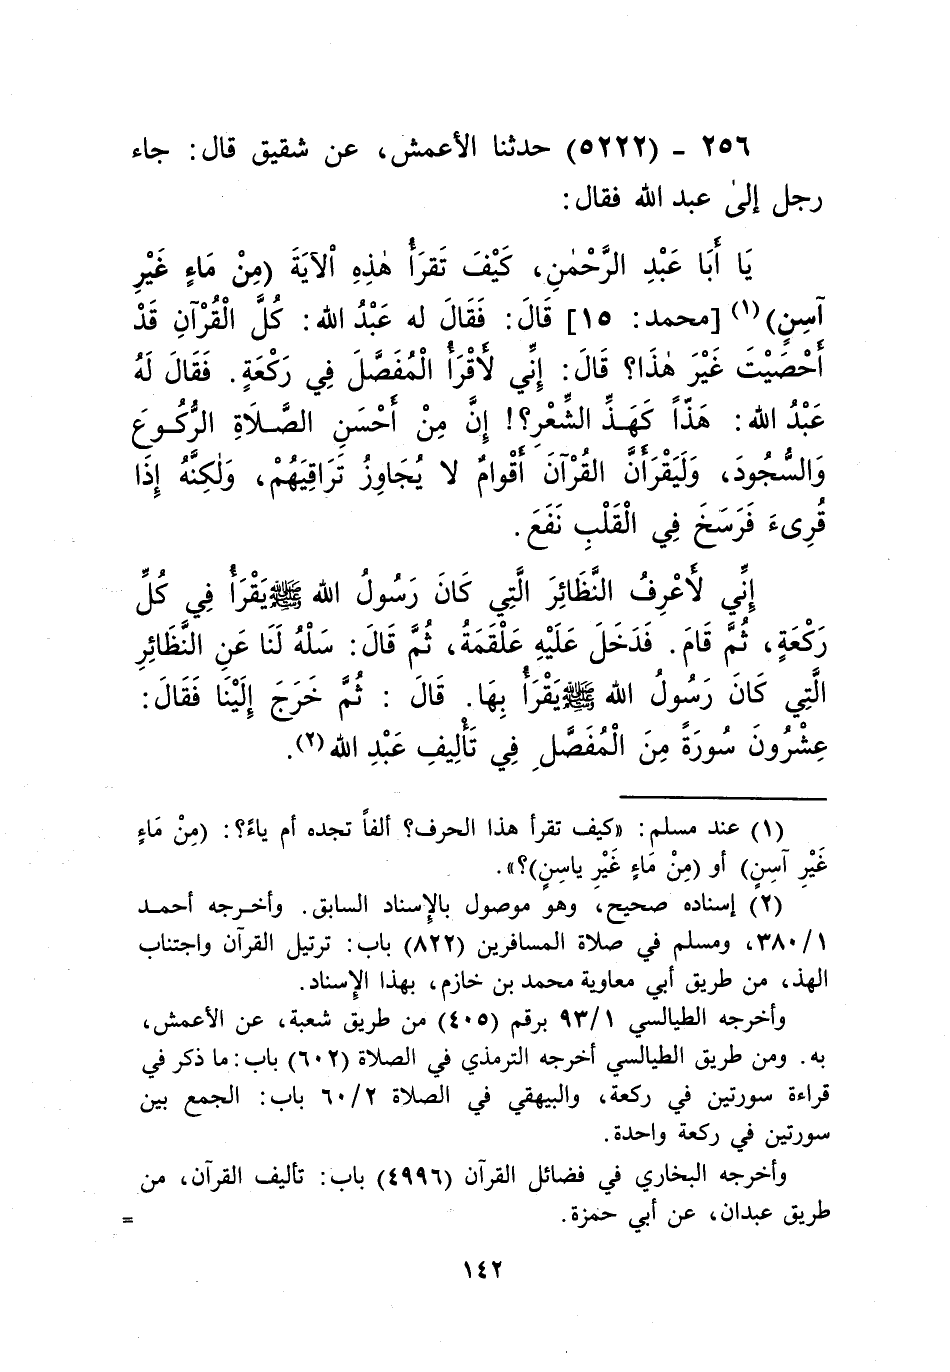 ٢٥٦ - (٥٢٢٢) حدثنا الأعمش، عن شقيق قال: جاء
رجل إلىٰ عبد الله فقال:
يَا أَبَا عَبْدِ الرَّحْمٰنِ، كَيْفَ تَقرَأُ هٰذِهِ ٱلآيَةَ (مِنْ مَاءٍ غَيْرِ
آسِنٍ)(١) [محمد: ١٥] قَالَ: فَقَالَ له عَبْدُ الله: كُلَّ الْقُرْآنِ قَدْ
أَحْصَيْتَ غَيْرَ هٰذَا؟ قَالَ: إِنِّي لَأَقْرَأُ الْمُفَصَّلَ فِي رَكْعَةٍ. فَقَالَ لَهُ
عَبْدُ الله: هَذّاً كَهَذِّ الشِّعْرِ؟! إِنَّ مِنْ أَحْسَنِ الصَّلَاةِ الرُّكُوعَ
وَالسُّجُودَ، وَلَيَقْرَأَنَّ القُرْآنَ أَقْوامٌ لا يُجَاوِزُ تَرَاقِيَهُمْ، وَلٰكِنَّهُ إِذَا
قُرِىءَ فَرَسَخَ فِي الْقَلْبِ نَفَعَ.
إِنِّي لَأَعْرِفُ النَّظَائِرَ الَّتِي كَانَ رَسُولُ الله ﷺ يَقْرَأُ فِي كُلِّ
رَكْعَةٍ، ثُمَّ قَامَ. فَدَخَلَ عَلَيْهِ عَلْقَمَةُ، ثُمَّ قَالَ: سَلْهُ لَنَا عَنِ النَّظَائِرِ
الَّتِي كَانَ رَسُولُ الله ﷺ يَقْرَأُ بِهَا. قَالَ : ثُمَّ خَرَجَ إِلَيْنَا فَقَالَ:
عِشْرُونَ سُورَةً مِنَ الْمُفَصَّلِ فِي تَأْلِيفِ عَبْدِ الله(٢).
(١) عند مسلم: «كيف تقرأ هذا الحرف؟ ألفاً تجده أم ياءً؟: (مِنْ مَاءٍ
غَيْرِ آسِنٍ) أو (مِنْ مَاءٍ غَيْرِ ياسِنٍ)؟».
(٢) إسناده صحيح، وهو موصول بالإسناد السابق. وأخرجه أحمد
٣٨٠/١، ومسلم في صلاة المسافرين (٨٢٢) باب: ترتيل القرآن واجتناب
الهذ، من طريق أبي معاوية محمد بن خازم، بهذا الإسناد.
وأخرجه الطيالسي ٩٣/١ برقم (٤٠٥) من طريق شعبة، عن الأعمش،
به. ومن طريق الطيالسي أخرجه الترمذي في الصلاة (٦٠٢) باب: ما ذكر في
قراءة سورتين في ركعة، والبيهقي في الصلاة ٦٠/٢ باب: الجمع بين
سورتين في ركعة واحدة.
وأخرجه البخاري في فضائل القرآن (٤٩٩٦) باب: تأليف القرآن، من
طريق عبدان، عن أبي حمزة. =
١٤٢